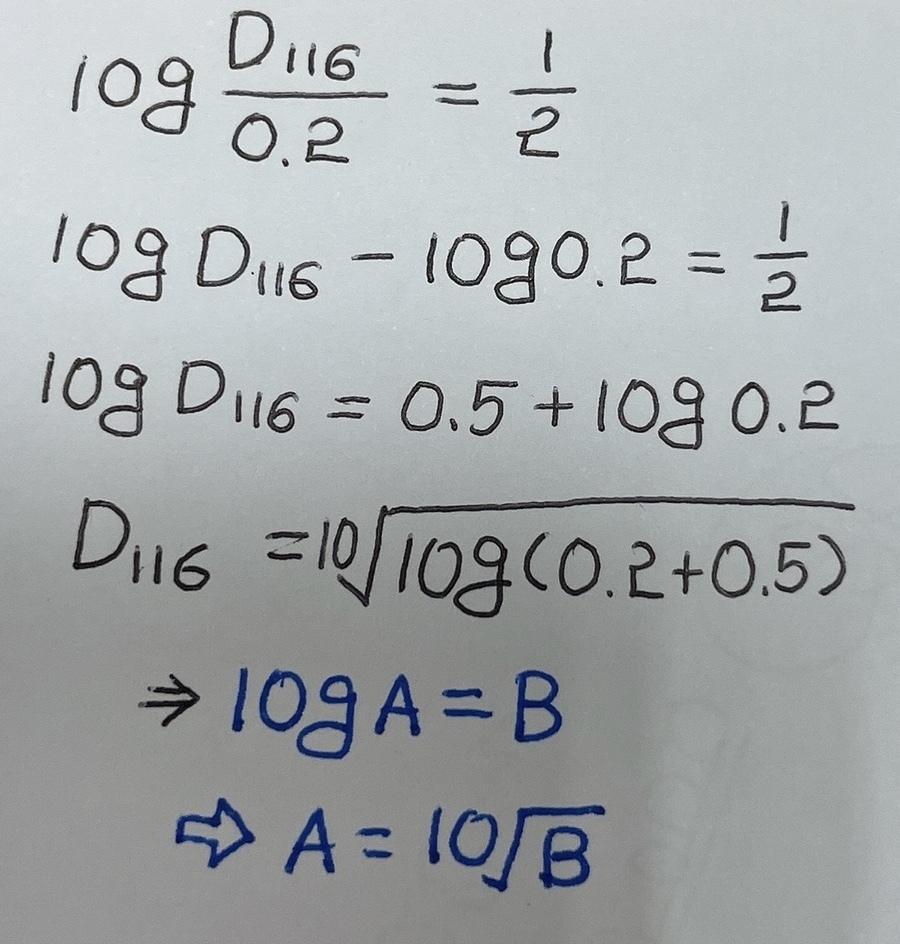 log D₁₁₆/0.2 = 1/2
log D₁₁₆ - log 0.2 = 1/2
log D₁₁₆ = 0.5 + log 0.2
D₁₁₆ = 10√log(0.2+0.5)
⇒ log A = B
⇨ A = 10√B